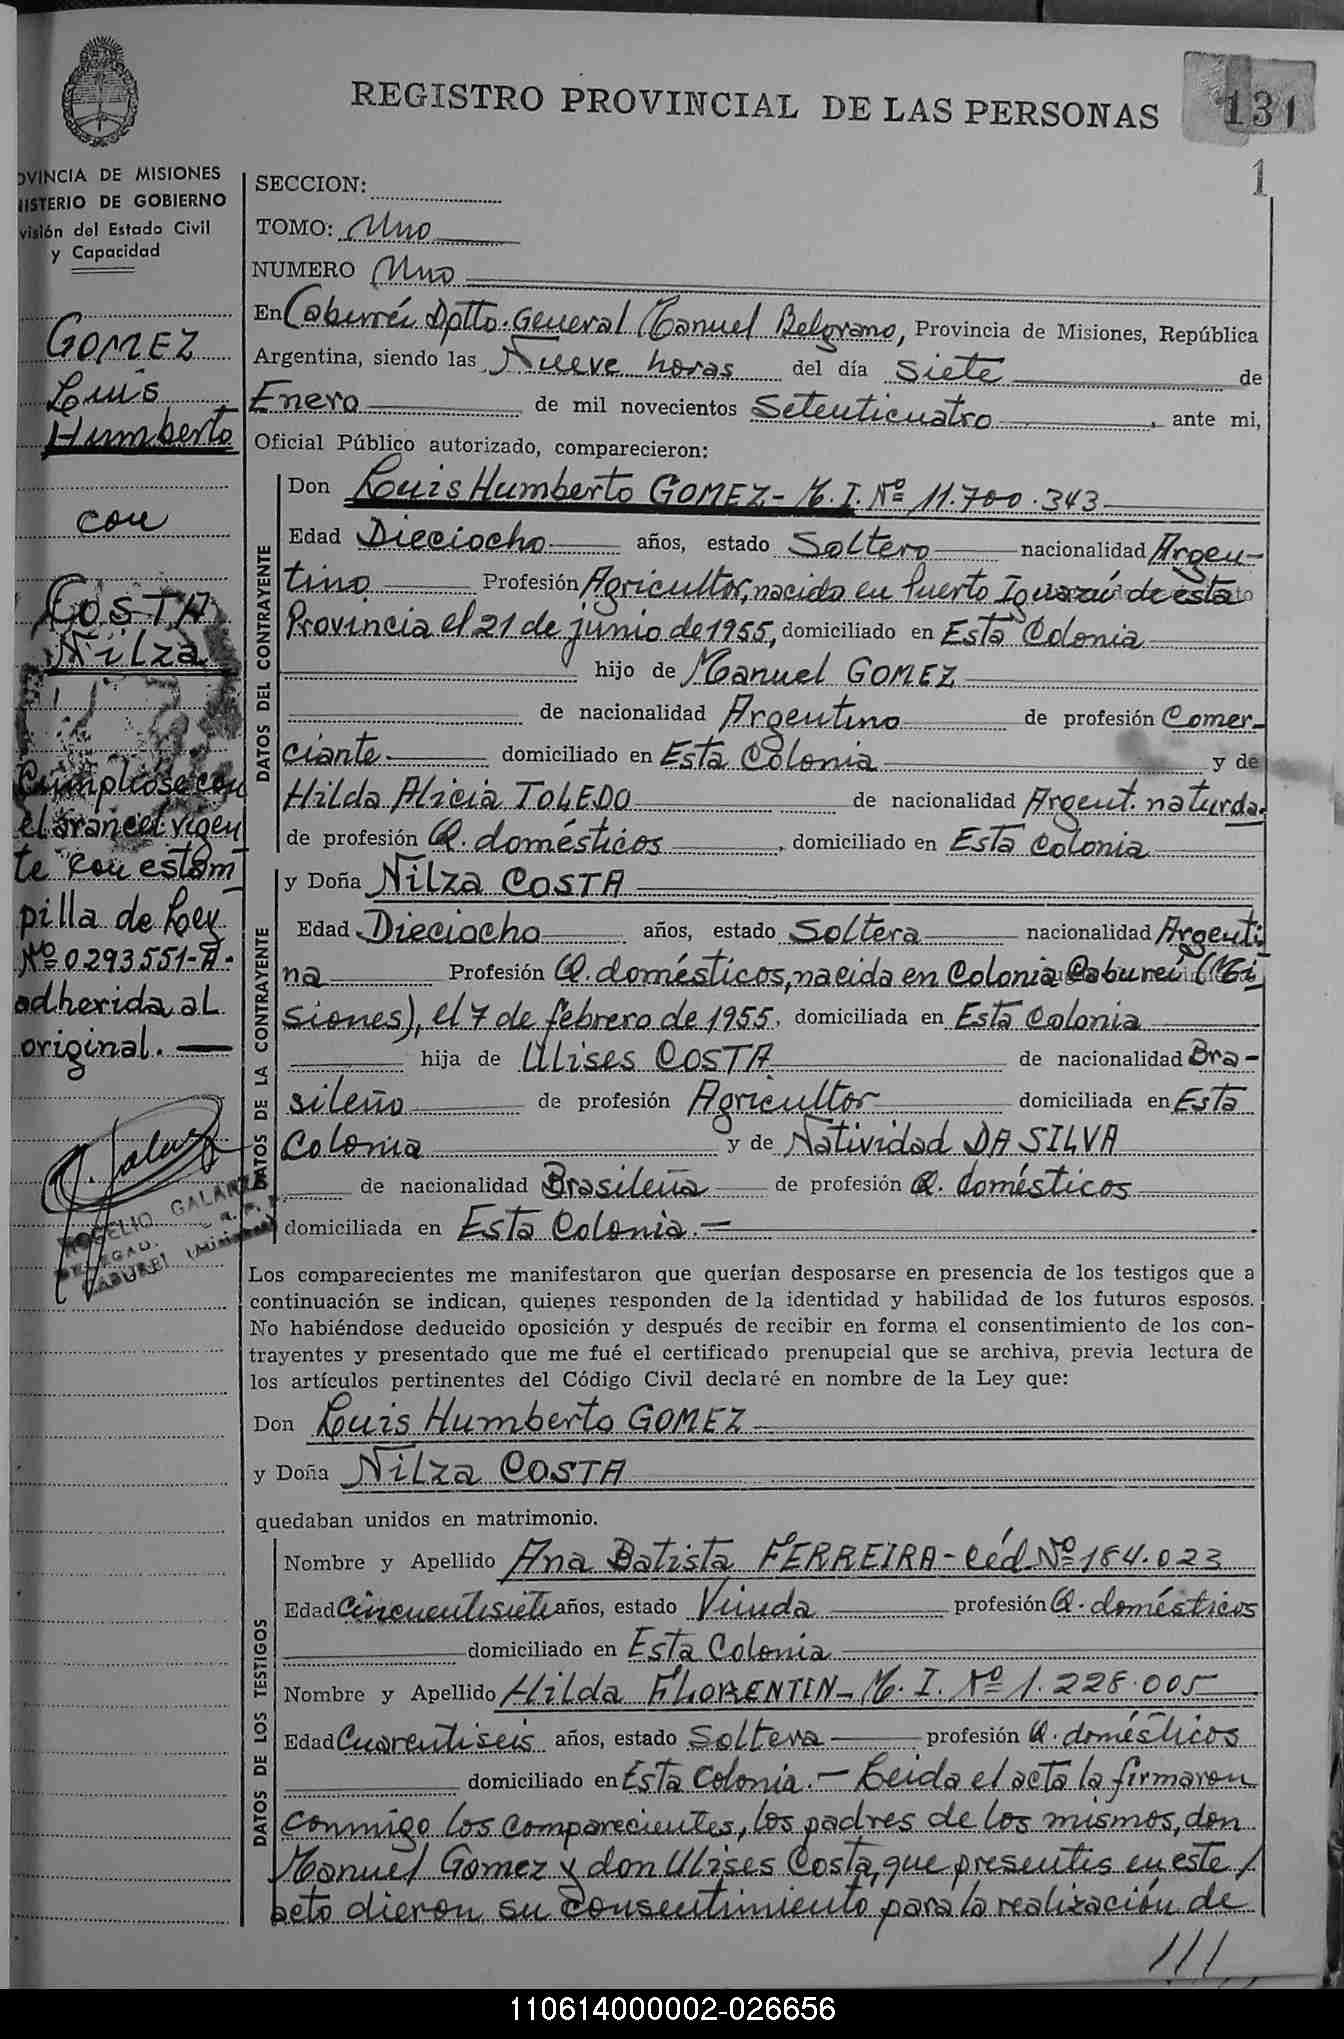 REGISTRO PROVINCIAL DE LAS PERSONAS
131
1
OVINCIA DE MISIONES
NISTERIO DE GOBIERNO
visión del Estado Civil
y Capacidad
GOMEZ
Luis
Humberto
con
COSTA
Nilza
Cumplióse con
el arancel vigen
te con estam
pilla de Ley
Nº 0293551-A.
adherida al
original.
ROGELIO GALARZA
DELEGAD.
CABUREI (Misiones)
SECCION:
TOMO: Uno
NUMERO Uno
En Caburéi Dptto. General Manuel Belgrano, Provincia de Misiones, República
Argentina, siendo las Nueve horas del día siete de
Enero de mil novecientos Setenticuatro, ante mi,
Oficial Público autorizado, comparecieron:
DATOS DEL CONTRAYENTE
Don Luis Humberto GOMEZ - M. I. Nº 11.700.343
Edad Dieciocho años, estado Soltero nacionalidad Argen-
tino Profesión Agricultor, nacido en Puerto Iguazú de esta
Provincia el 21 de junio de 1955, domiciliado en Esta Colonia
hijo de Manuel GOMEZ
de nacionalidad Argentino de profesión Comer-
ciante domiciliado en Esta Colonia y de
Hilda Alicia TOLEDO de nacionalidad Argent. naturda.
de profesión Q. domésticos, domiciliado en Esta Colonia
DATOS DE LA CONTRAYENTE
y Doña Nilza COSTA
Edad Dieciocho años, estado Soltera nacionalidad Argenti
na Profesión Q. domésticos, nacida en Colonia Caburei (Mi
siones), el 7 de febrero de 1955, domiciliada en Esta Colonia
hija de Ulises COSTA de nacionalidad Bra-
sileño de profesión Agricultor domiciliada en Esta
Colonia y de Natividad DA SILVA
de nacionalidad Brasileña de profesión Q. domésticos
domiciliada en Esta Colonia.-
Los comparecientes me manifestaron que querían desposarse en presencia de los testigos que a
continuación se indican, quienes responden de la identidad y habilidad de los futuros esposos.
No habiéndose deducido oposición y después de recibir en forma el consentimiento de los con-
trayentes y presentado que me fué el certificado prenupcial que se archiva, previa lectura de
los artículos pertinentes del Código Civil declaré en nombre de la Ley que:
Don Luis Humberto GOMEZ
y Doña Nilza COSTA
quedaban unidos en matrimonio.
DATOS DE LOS TESTIGOS
Nombre y Apellido Ana Batista FERREIRA - Céd. Nº 184.023
Edad Cincuentisiete años, estado Viuda profesión Q. domésticos
domiciliado en Esta Colonia
Nombre y Apellido Hilda FLORENTIN - M. I. Nº 1.228.005
Edad Cuarentiseis años, estado Soltera profesión Q. domésticos
domiciliado en Esta Colonia.- Leida el acta la firmaron
conmigo los comparecientes, los padres de los mismos, don
Manuel Gomez y don Ulises Costa, que presentes en este
acto dieron su consentimiento para la realización de
///
110614000002-026656